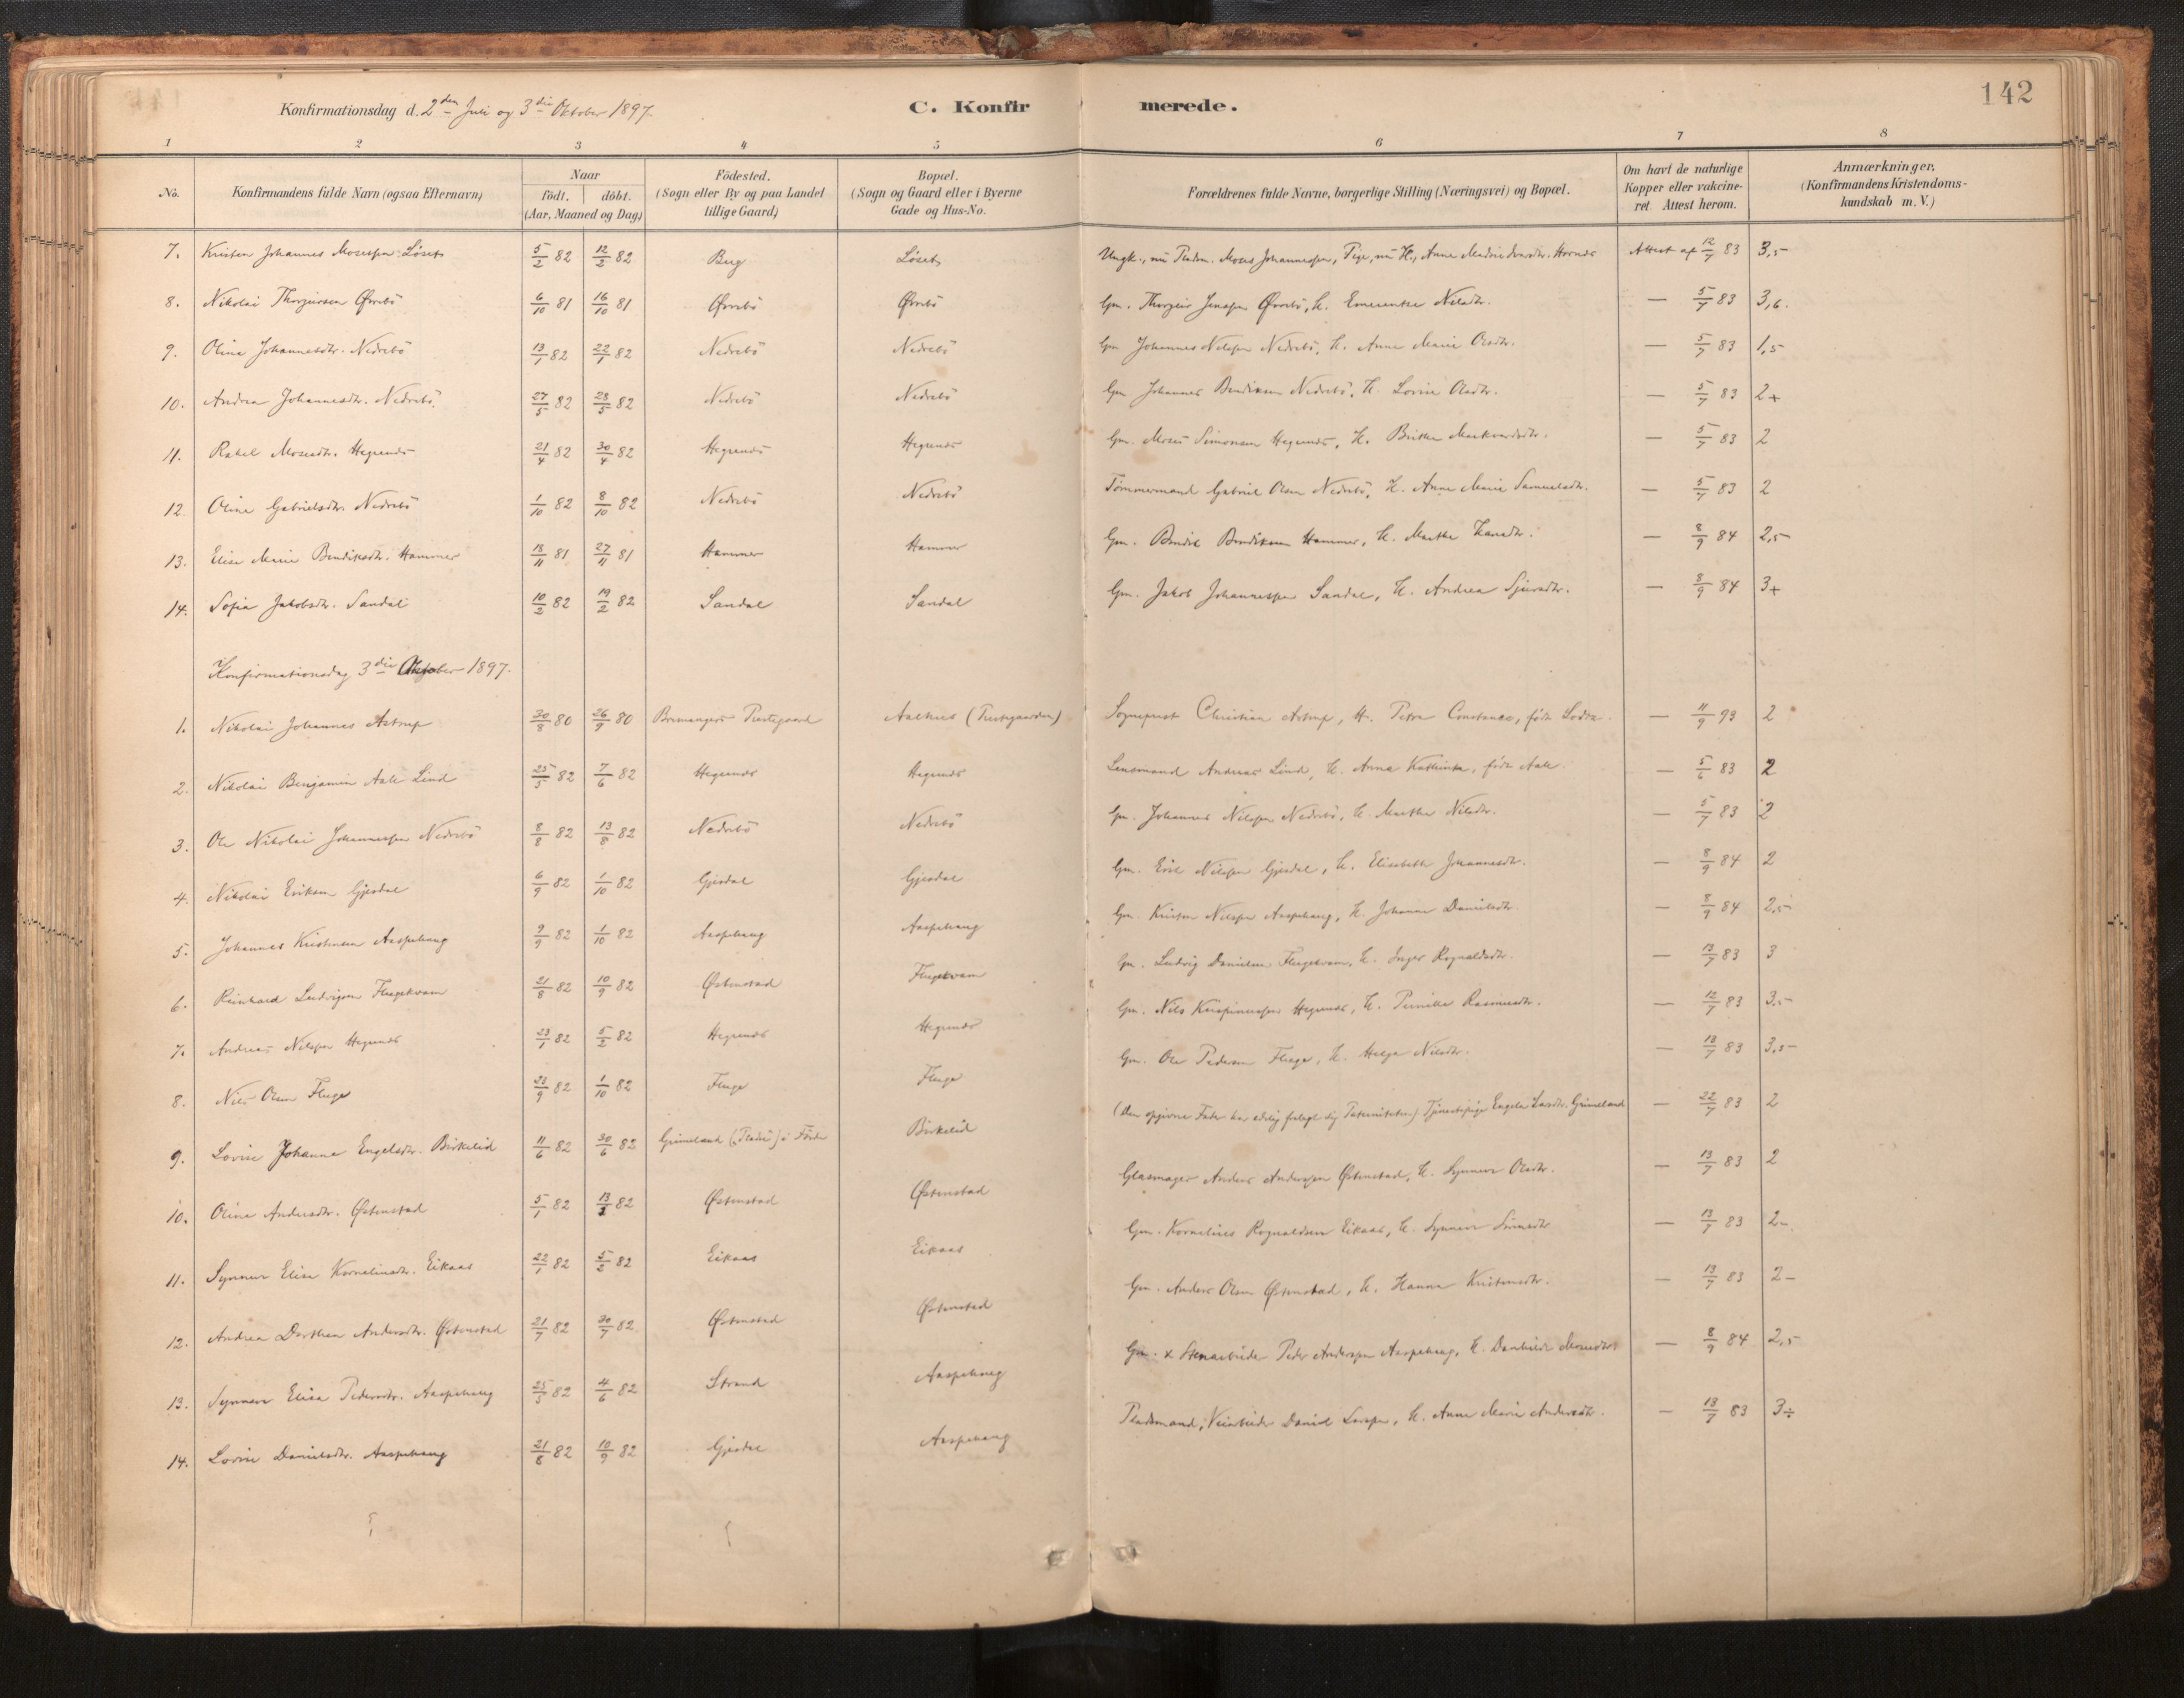 142
Konfirmationsdag d. 2den Juli og 3die Oktober 1897.
C. Konfirmerede.
1 2 3 4 5 6 7 8
No. Konfirmandens fulde Navn (ogsaa Efternavn) Naar födt. döbt. (Aar, Maaned og Dag) Födested. (Sogn eller By og paa Landet tillige Gaard) Bopæl. (Sogn og Gaard eller i Byerne Gade og Hus-No. Forældrenes fulde Navne, borgerlige Stilling (Næringsvei) og Bopæl. Om havt de naturlige Kopper eller vakcineret Attest herom. Anmærkninger. (Konfirmandens Kristendomskundskab m. V.)
7. Kristen Johannes Mosessen Löset 5/2 82 12/2 82 Berg Löset Ungk., nu Pladsm. Moses Johannessen, Pige, nu H., Anne Madrie Hornæs Attest af 12/7 83 3,5
8. Nikolai Thorgeirsen Øvrebö 6/10 81 16/10 81 Øvrebö Øvrebö Gm. Thorgeir Jenssen Øvrebö, H. Emerentse Nilsdtr. — 5/7 83 3,6.
9. Oline Johannesdtr. Nedrebö 13/1 82 22/1 82 Nedrebö Nedrebö Gm Johannes Nilssen Nedrebö, H. Anne Marie Olsdtr. — 5/7 83 1,5
10. Andrea Johannesdtr. Nedrebö. 27/5 82 28/5 82 Nedrebö Nedrebö Gm Johannes Bendiksen Nedrebö, H. Lovise Olsdtr. — 5/7 83 2+
11. Rakel Mosesdtr. Hegrenæs 21/4 82 30/4 82 Hegrenæs Hegrenæs Gm. Moses Simonsen Hegrenæs, H. Brithe Markvardsdtr. — 5/7 83 2
12. Oline Gabrielsdtr. Nedrebö 1/10 82 8/10 82 Nedrebö Nedrebö Tömmermand Gabriel Olsen Nedrebö, H. Anne Marie Samuelsdtr. — 5/7 83 2
13. Elise Marie Bendiksdtr. Hammer 18/11 81 27/11 81 Hammer Hammer Gm. Bendik Bendiksen Hammer, H. Marthe Hansdtr. — 8/9 84 2,5
14. Sofia Jakobsdtr. Sandal 10/2 82 19/2 82 Sandal Sandal Gm. Jakob Johannessen Sandal, H. Andrea Sjursdtr. — 8/9 84 3+
Konfirmationsdag 3die Oktober 1897.
1. Nikolai Johannes Astrup 30/8 80 26/9 80 Bremangers Prestegaard Aalhus (Prestegaarden) Sogneprest Christian Astrup, H. Petra Constance, födt — 11/9 93 2
2. Nikolai Benjamin Aall Lind 25/5 82 7/6 82 Hegrenæs Hegrenæs Lensmand Andreas Lind, H. Anna Kathinka, födt Aall. — 5/6 83 2
3. Ole Nikolai Johannessen Nedrebö 8/8 82 13/8 82 Nedrebö Nedrebö Gm. Johannes Nilssen Nedrebö, H. Marthe Nilsdtr. — 5/7 83 2
4. Nikolai Eriksen Gjesdal 6/9 82 1/10 82 Gjesdal Gjesdal Gm. Erik Nilssen Gjesdal, H. Elisabeth Johannesdtr. — 8/9 84 2
5. Johannes Kristensen Aaspehaug 9/9 82 1/10 82 Aaspehaug Aaspehaug Gm. Kristen Nilssen Aaspehaug, H. Johanne Danielsdtr. — 8/9 84 2,5
6. Reinhard Ludvigsen Flugekvam 21/8 82 10/9 82 Østenstad Flugekvam Gm. Ludvig Danielsen Flugekvam, H. Inger Rognaldsdtr. — 13/7 83 3
7. Andreas Nilssen Hegrenæs 23/1 82 5/2 82 Hegrenæs Hegrenæs Gm. Nils Krispinussen Hegrenæs, H. Pernille Rasmusdtr. — 12/7 83 3,5
8. Nils Olsen Fluge 23/9 82 1/10 82 Fluge Fluge Gm. Ole Pedersen Fluge, H. Helga Nilsdtr. — 13/7 83 3,5
9. Lovise Johanna Engelsdtr. Birkelid 11/6 82 30/6 82 Grimeland (Pladsi) i Förde Birkelid (Den opgivne Fader har edelig fralagt sig Paterniteten) Tjenestepige Engela Larsdtr. Grimeland — 22/7 83 2
10. Oline Andersdtr. Østenstad 5/1 82 13/1 82 Østenstad Østenstad Glasmager Anders Anderssen Østenstad, H. Synneve Olsdtr. — 13/7 83 2
11. Synneve Elisa Korneliusdtr. Eikaas 22/1 82 5/2 82 Eikaas Eikaas Gm. Kornelius Rognaldsen Eikaas, H. Synneve Simesdtr — 13/7 83 2-
12. Andrea Dorthea Andersdtr. Østenstad 21/7 82 30/7 82 Østenstad Østenstad Gm. Anders Olsen Østenstad, H. Hanna Kristensdtr. — 13/7 83 2-
13. Synneve Elisa Pedersdtr. Aaspehaug 25/5 82 4/6 82 Strand Aaspehaug Gm. & Stenarbeider Peder Anderssen Aaspehaug, H. Danhilde Mosesdtr. — 8/9 84 2,5
14. Lovise Danielsdtr. Aaspehaug 21/8 82 10/9 82 Gjesdal Aaspehaug Pladsmand, Veiarbeider Daniel Larssen, H. Anne Marie Andersdtr. — 13/7 83 3÷